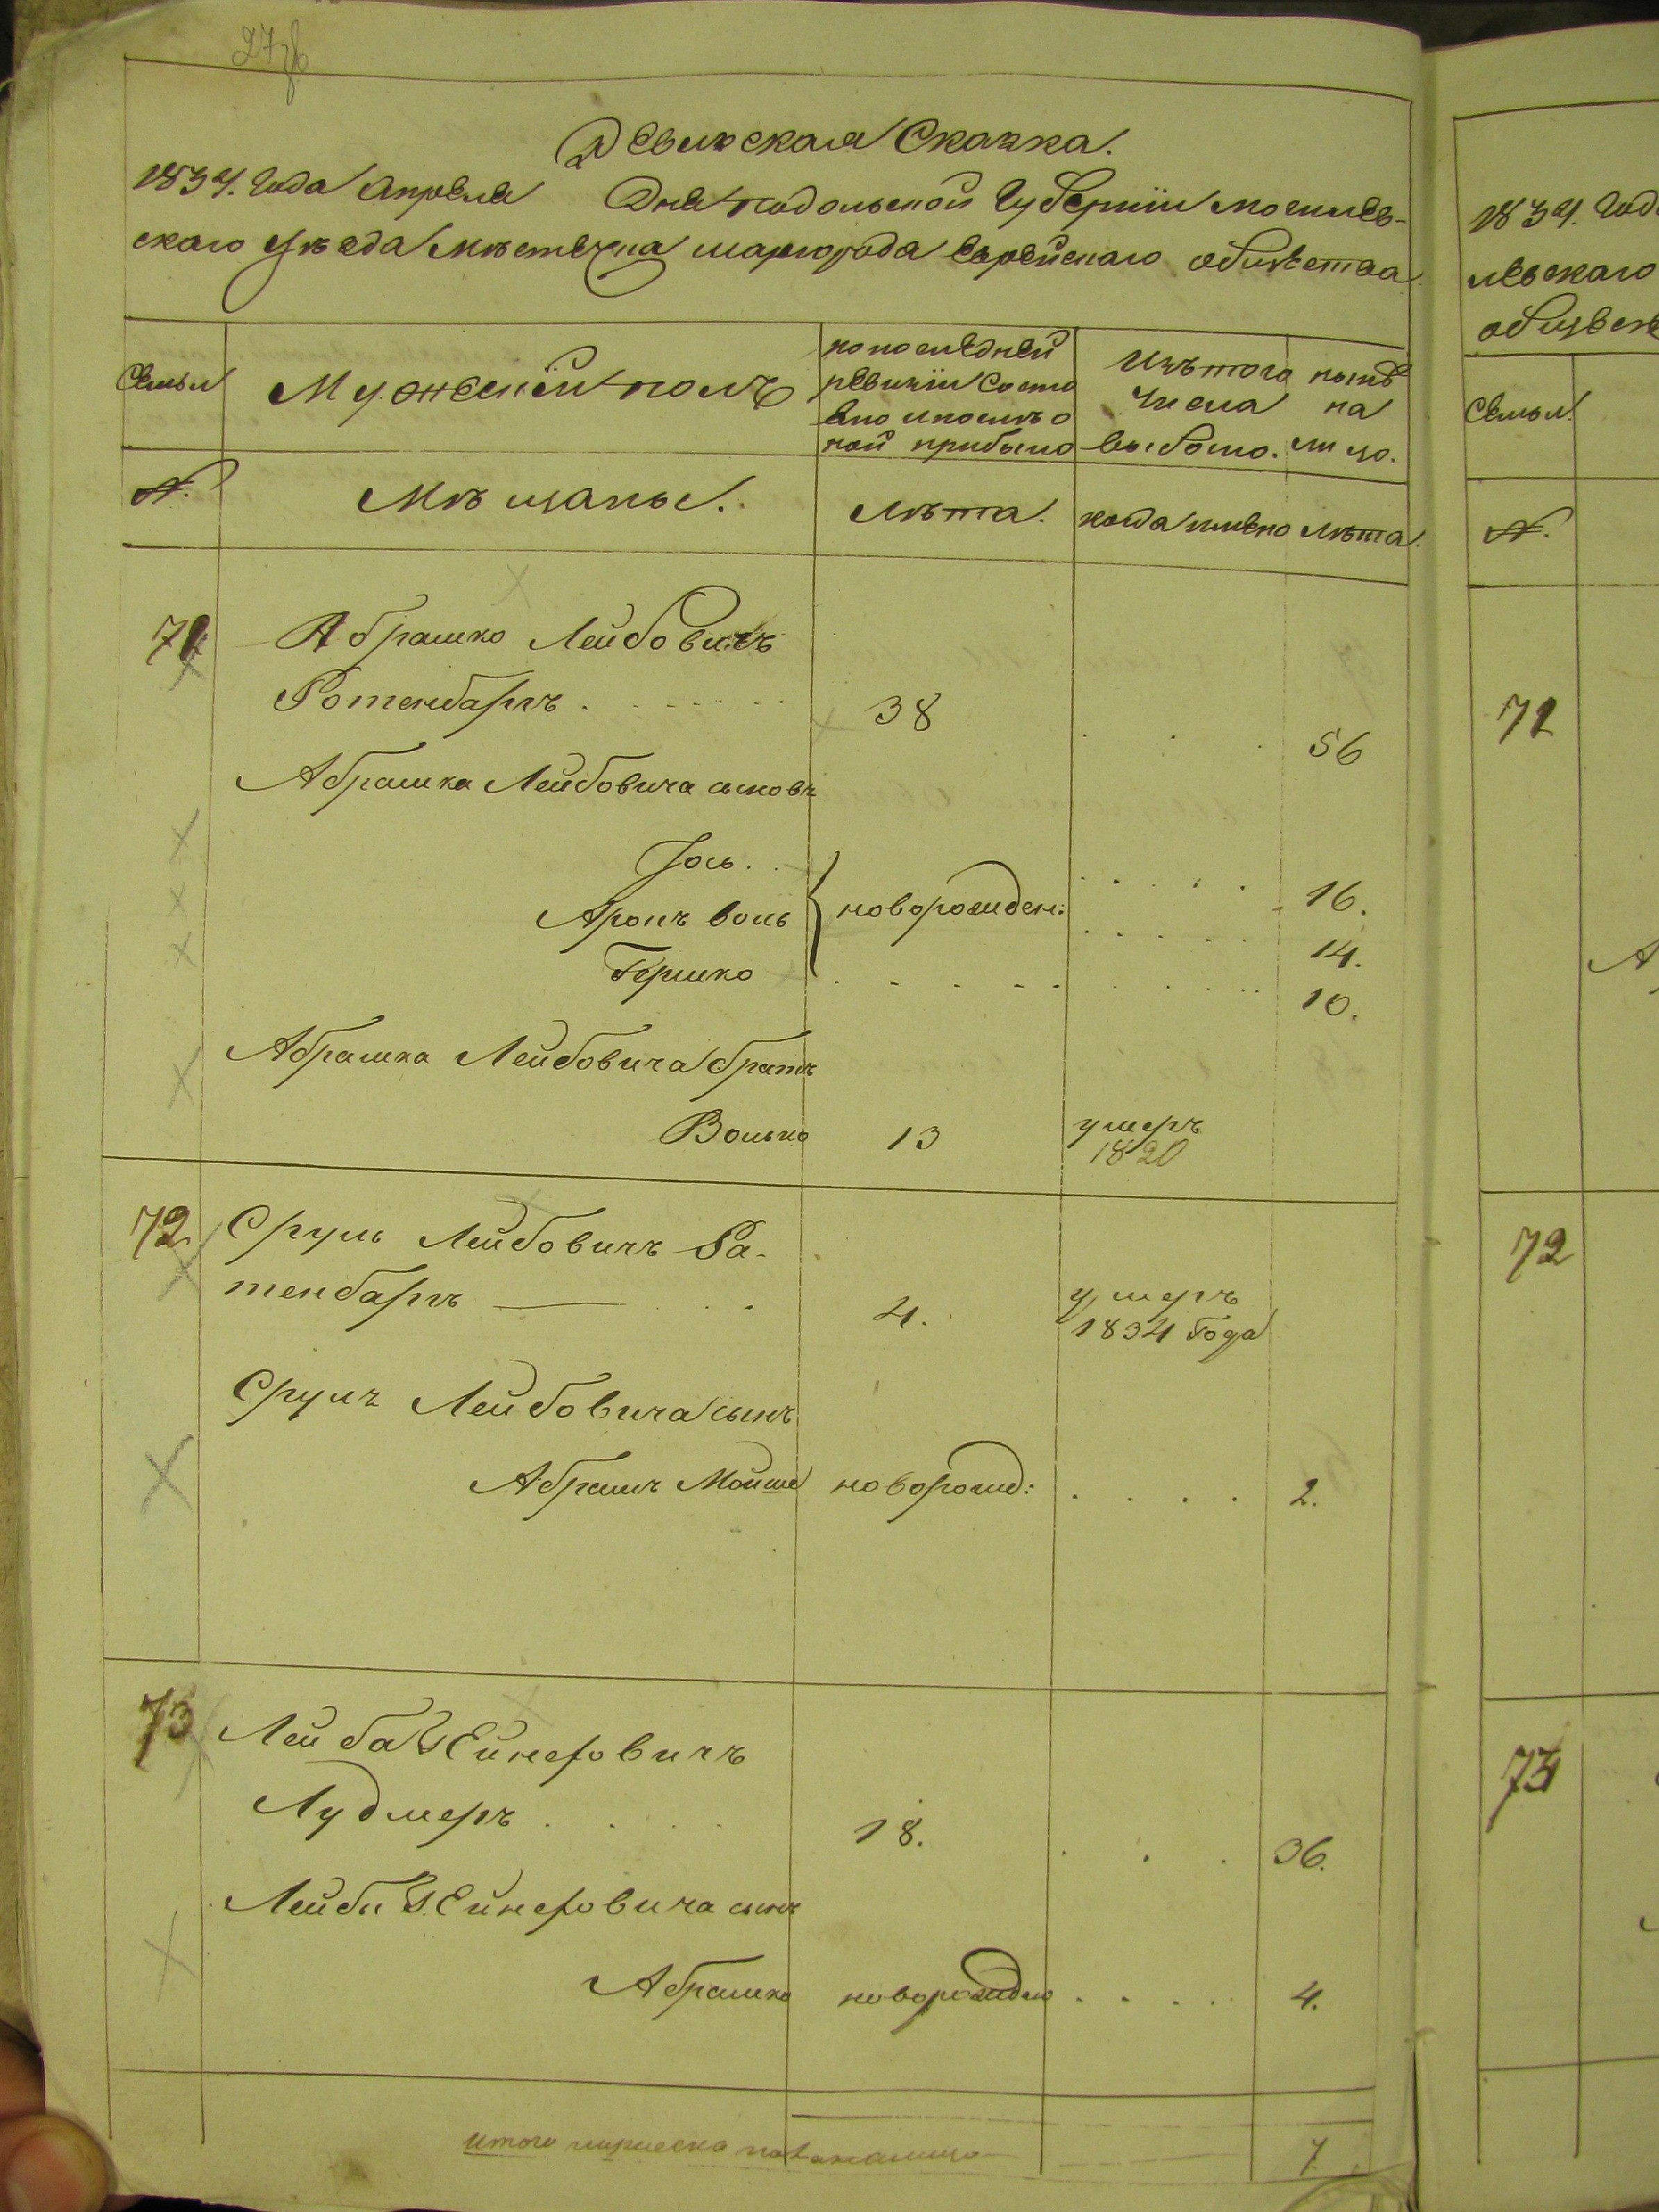 Ревизская Сказка.
1834. Года Апреля Дня Подольской Губернiи Могилев-
скаго Уѣзда Мѣстечка Шаргорода Еврейскаго общества
Семьи
Мужескiй полъ
по последней
ревизiи состо
яло и после о
ной прибыло
Изъ того
числа
выбыло.
нынѣ
на
лицо.
№.
Мѣщаны.
Лѣта.
когда имено
Лѣта.
71
Абрашко Лейбовичъ
Ротенбаргъ
38
56
Абрашка Лейбовича сыновъ
Iось.
16.
Аронъ воль
новорожден:
14.
Гершко
10.
Абрашка Лейбовича братъ
Волько
13
умеръ
1820
72
Сруль Лейбовичъ Ра-
тенбаргъ
4.
умеръ
1834 Года
Срулъ Лейбовича сынъ
Абрамъ Мойше
новорожд:
2.
73
Лейба Зейнеровичъ
Лудмеръ
18.
36.
Лейбы Зейнеровича сынъ
Абрашко
4.
Итого мужеска пола на лицо
7
1834. Года
левскаго
обществ
Семьи.
№.
71
72
73